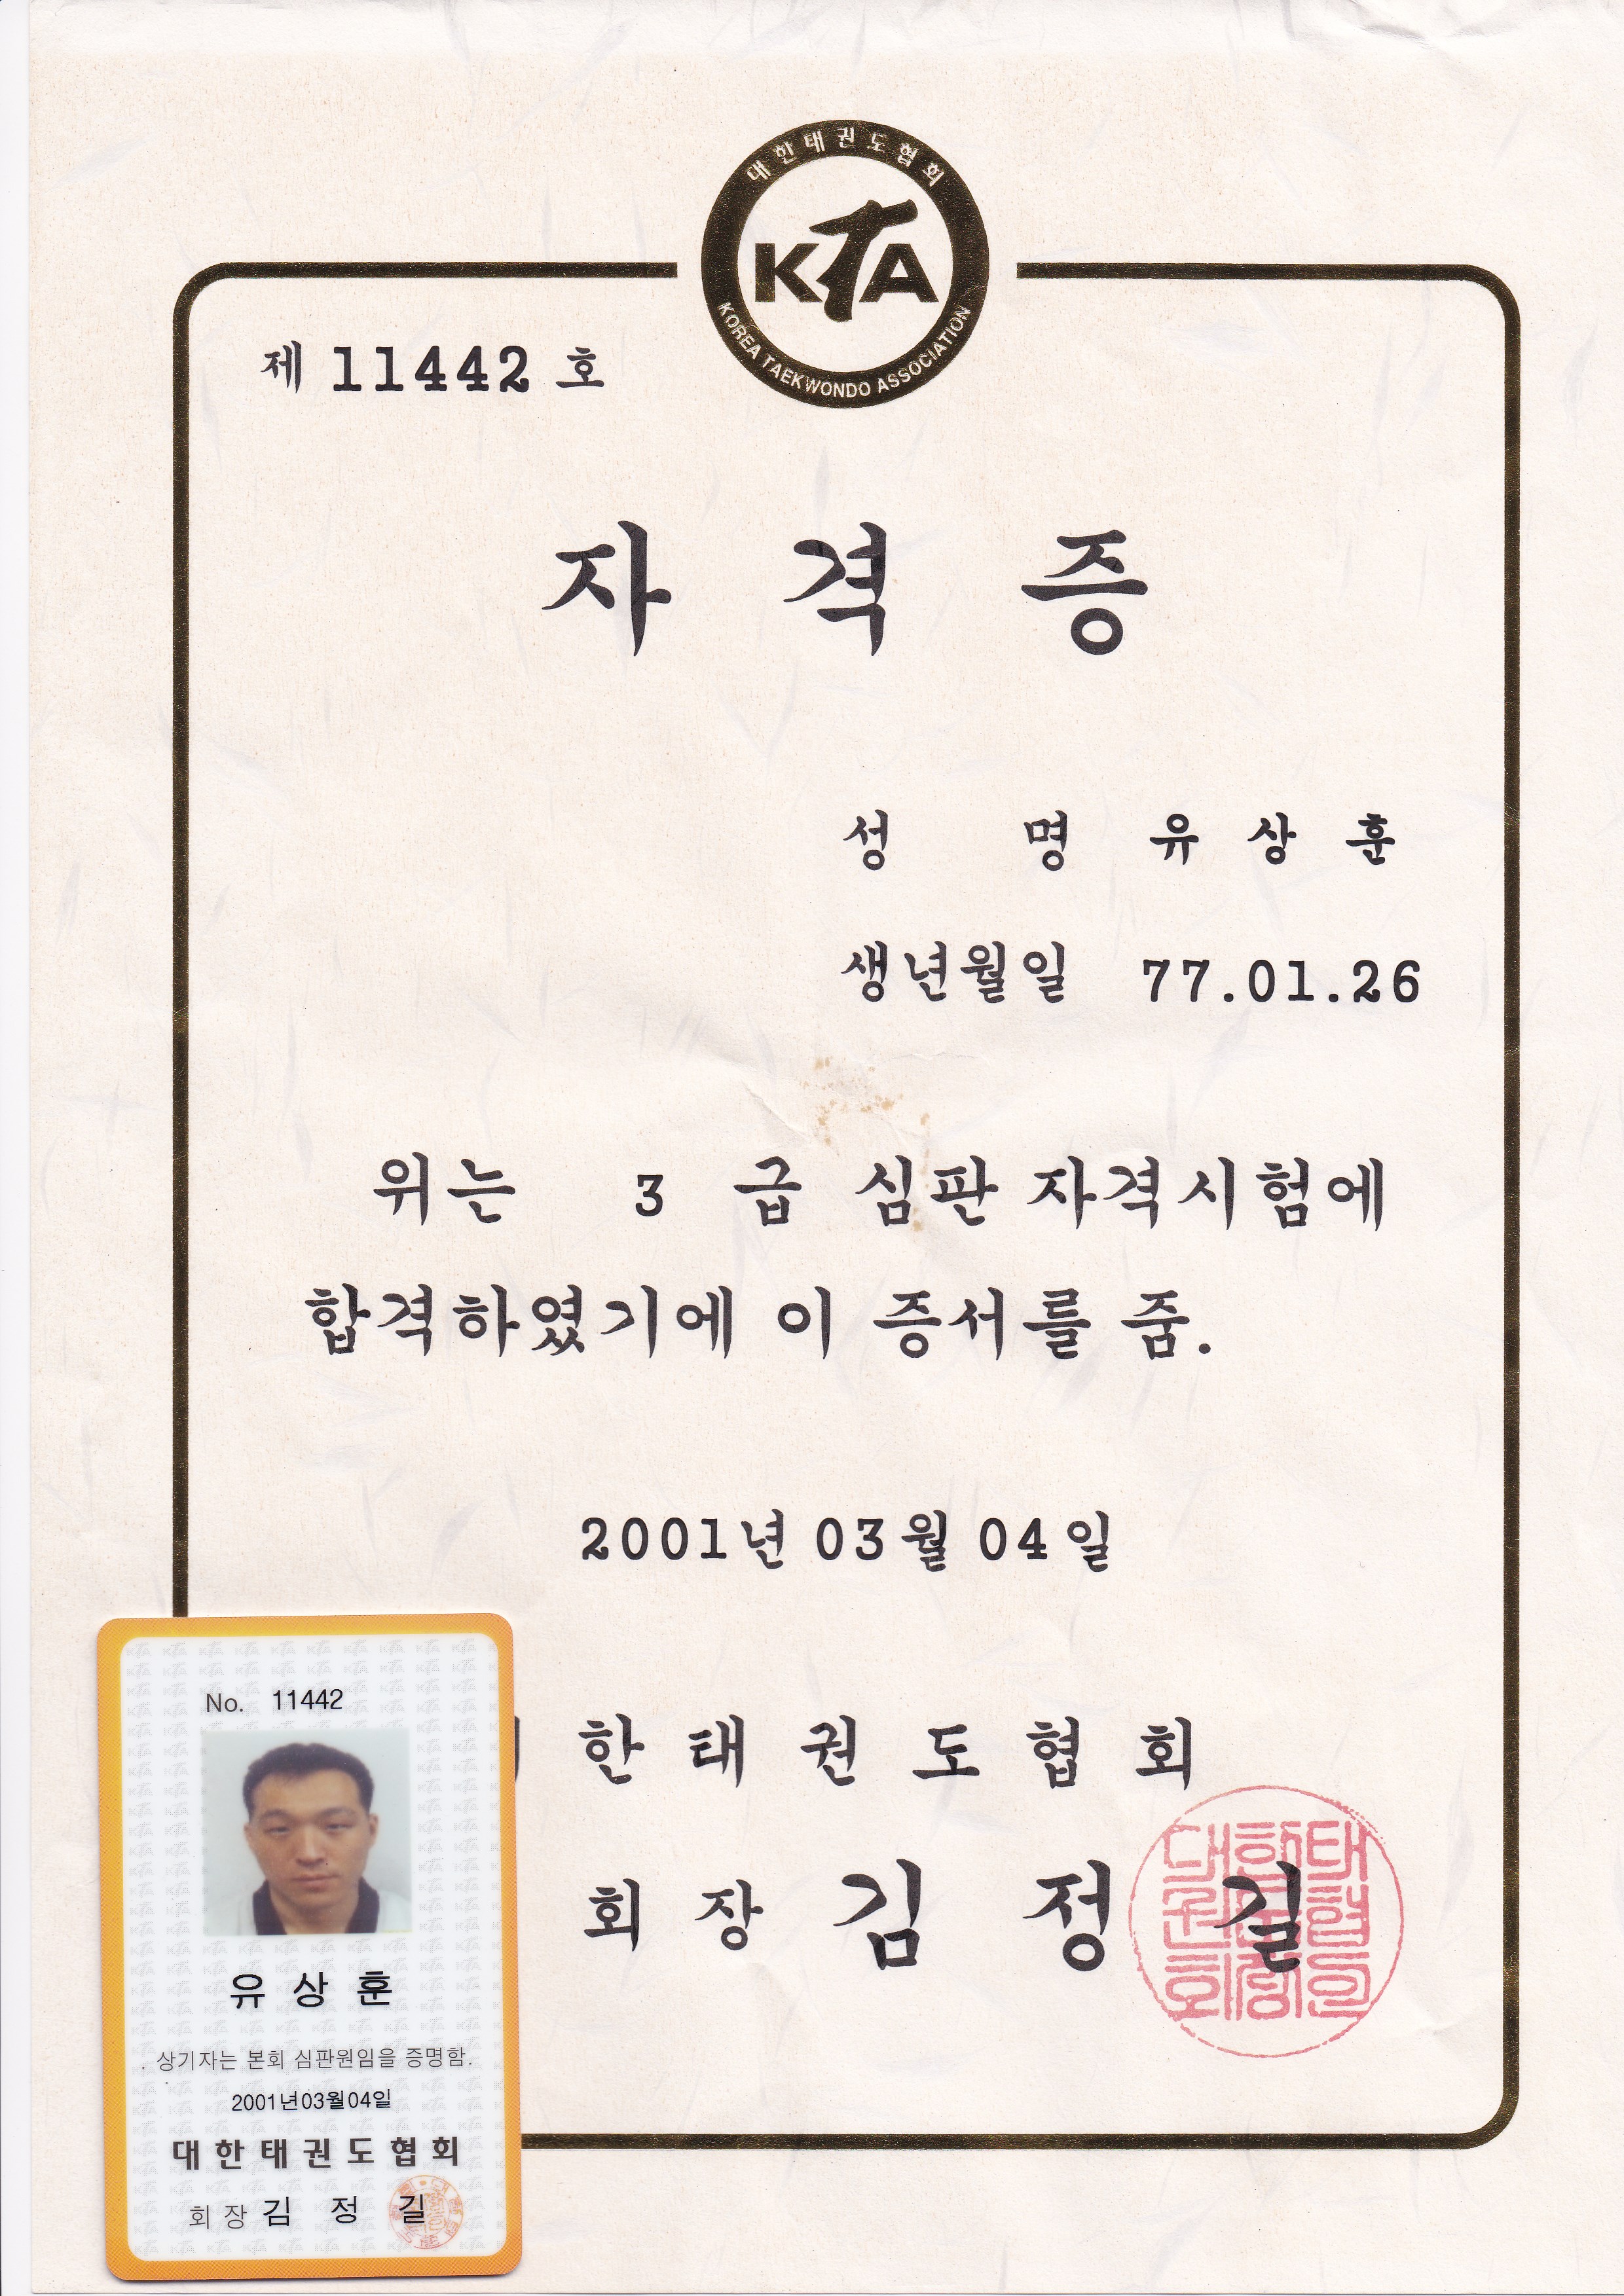 대한태권도협회
KTA
KOREA TAEKWONDO ASSOCIATION
제 11442 호
자 격 증
성 명 유 상 훈
생년월일 77.01.26
위는 3 급 심판 자격시험에
합격하였기에 이 증서를 줌.
2001년 03월 04일
한 태 권 도 협 회
회 장 김 정 길
No. 11442
유 상 훈
상기자는 본회 심판원임을 증명함.
2001년03월04일
대 한 태 권 도 협 회
회 장 김 정 길